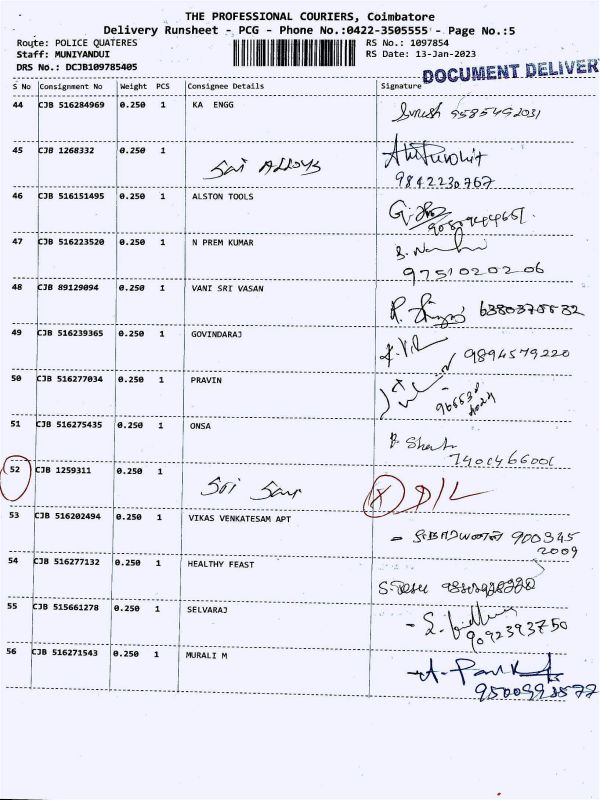 THE PROFESSIONAL COURIERS, Coimbatore
Delivery Runsheet - PCG - Phone No.:0422-3505555 - Page No.:5
Route: POLICE QUATERES RS No.: 1097854
Staff: MUNIYANDUI RS Date: 13-Jan-2023
DRS No.: DCJB109785405
DOCUMENT DELIVER
S No Consignment No Weight PCS Consignee Details Signature
44 CJB 516284969 0.250 1 KA ENGG Suresh 9585492031
45 CJB 1268332 0.250 1 Sai Alloys
9842230767
46 CJB 516151495 0.250 1 ALSTON TOOLS
47 CJB 516223520 0.250 1 N PREM KUMAR
9751020206
48 CJB 89129094 0.250 1 VANI SRI VASAN
49 CJB 516239365 0.250 1 GOVINDARAJ 9894579220
50 CJB 516277034 0.250 1 PRAVIN
51 CJB 516275435 0.250 1 ONSA
52 CJB 1259311 0.250 1 Sri Sai X D/L
53 CJB 516202494 0.250 1 VIKAS VENKATESAM APT 900345
2009
54 CJB 516277132 0.250 1 HEALTHY FEAST
55 CJB 515661278 0.250 1 SELVARAJ
9092393750
56 CJB 516271543 0.250 1 MURALI M
9500993577